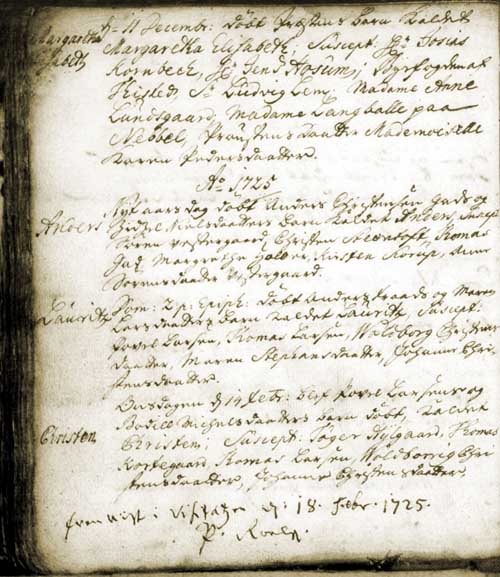 Margaretha d: 11 Decembr: døbt Præstens barn kaldet
Elisabeth Margaretha Elisabeth; Suscept: Josias
Kornbeck, Jens Aosum, Byefogden af
Thisted, Sr Ludvig Lem, Madame Anne
Lundsgaard, Madame Langballe paa
Nebbel, Provstens daatter Mademoiselle
Karen Pedersdaatter.
Ao 1725
Nyt aars dag døbt Anders Christensen Gads og
Anders Nielsdaatters barn kaldet Anders, Suscept
Søren Vestergaard, Christen, Thomas
Gad, Margrethe, Kirsten, Anne
Vestergaard.
Lauritz Dom: 2 p: Epiph: døbt Anders og Maren
Larsdaatters barn kaldet Lauritz, Suscept:
Povel Larsen, Thomas Larsen, Woldborg Christens
daatter, Maren Stephansdaatter, Johanne Chri
stensdaatter.
Onsdagen d 14 Febr: blef Povel Larsens og
Bodild Michelsdaatters barn døbt, kaldet
Christen Christen; Suscept: Søger Nylgaard, Thomas
Korsgaard, Thomas Larsen, Woldborrig Chri
stensdaatter, Johanne Christensdaatter.
d: 18 Febr. 1725.
P.